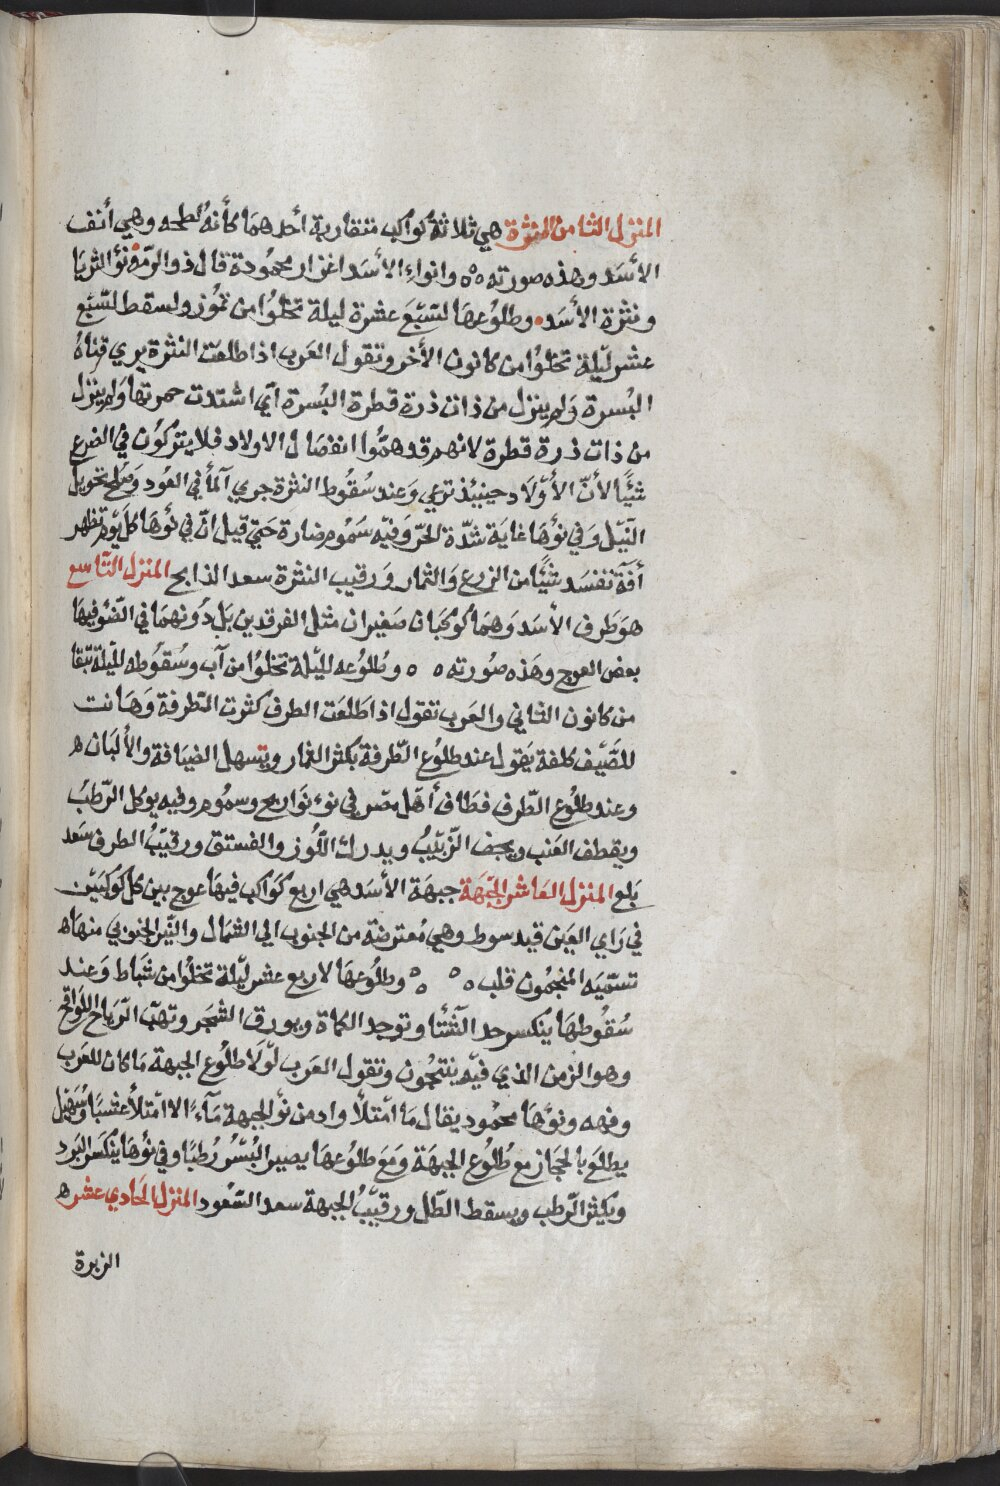 المنزل الثامن النثرة هي ثلاثة كواكب متقاربة أحدهما كأنه لطخه وهي أنف
الأسد وهذه صورته ه°ه وانواء الأسد اغزار محمودة قال ذوالرمّه نؤ الثريا
ونثرة الأسد وطلوعها لسَبع عشرة ليلة تخلوا من تموز ولسقط لسَبع
عشر ليلة تخلوا من كانون الأخر وتقول العرب اذا طلعت النثرة يري قناهُ
البُسرة ولم ينزل من ذات ذرة قطرة البُسرة أي اشتدت حمرتها ولم ينزل
من ذات ذرة قطرة لانهم قد همّوا انفصال الاولاد فلا يتركون في الضرع
شيًا لأنّ الأوّلاد حينيذ ترعي وعند سُقُوط النثرة جري ألمأ في العود وصلح تحويل
النيل وفي نؤها غاية شدّة الحرّ وفيه سَمُوم ضارة حتي قيل انّ في نؤها كل يوم تظهر
أفة تفسَد شيًا من الزرع والثمار ورقيب النثرة سعد الذابح المنزل التاسع
هو طرف الأسَد وهما كوكبان صغيران مثل الفرقدين بل دونهما في الضو فيها
بعض العوج وهَذه صُورته ه ه وطُلوُعه لليلة تخلوا من آب وسُقُوطه لليلة تبقا
من كانون الثاني والعرب تقول اذا طلعَت الطرف كثرت الطرفة وَهَانت
للضّيف كلفة يَقول عند طلوُع الطّرفة بكثر الثمار ويتسهل الضيَافة والألبَان ه
وعند طلوُع الطّرف قطاف أهل مصر في نوء نَواريح وسموم وفيه يوكل الرّطبُ
ويقطف العنب ويجف الزّبيبُ ويدرك اللّوز والفستق ورقيبُ الطرف سَعد
بَلع المنزل العَاشر الجَبهَة جبهَة الأسَد هي اربع كَواكب فيهَا عوج بين كل كَوكبَيْن
في رَاي العَين قيد سوط وهي مُعترضة من الجنوب الي الشمال والنيّر الجنوبي منها ه
تسمّيه المنجمُون قلب ه ° ه ° وطلوعهَا لاربع عشر ليلة تخلوا من شباط وعند
سُقُوطها ينكسر حد الشّتا وتوجد الكماة ويورق الشجر وتهبّ الرّياح اللواقح
وهو الزمن الذي فيه ينتجُون وتقول العَرب لوّلا طلُوع الجبهة مَا كان للعَرب
وفهه ونؤها محمُود يقال مَا امْتلأ واد من نؤ الجبهة مَآءً الا امْتلأ عشبًا وسُهيل
يطلع بالحجاز مع طُلوُع الجبهَة ومَع طلوُعها يصير البُسْرُ رُطبًا وفي نؤهَا ينكسَر البَرد
ويكثر الرّطب ويسقط الطّل ورقيبُ الجبهة سعد السّعُود المنزل الحَادي عشر ه
الزبرة